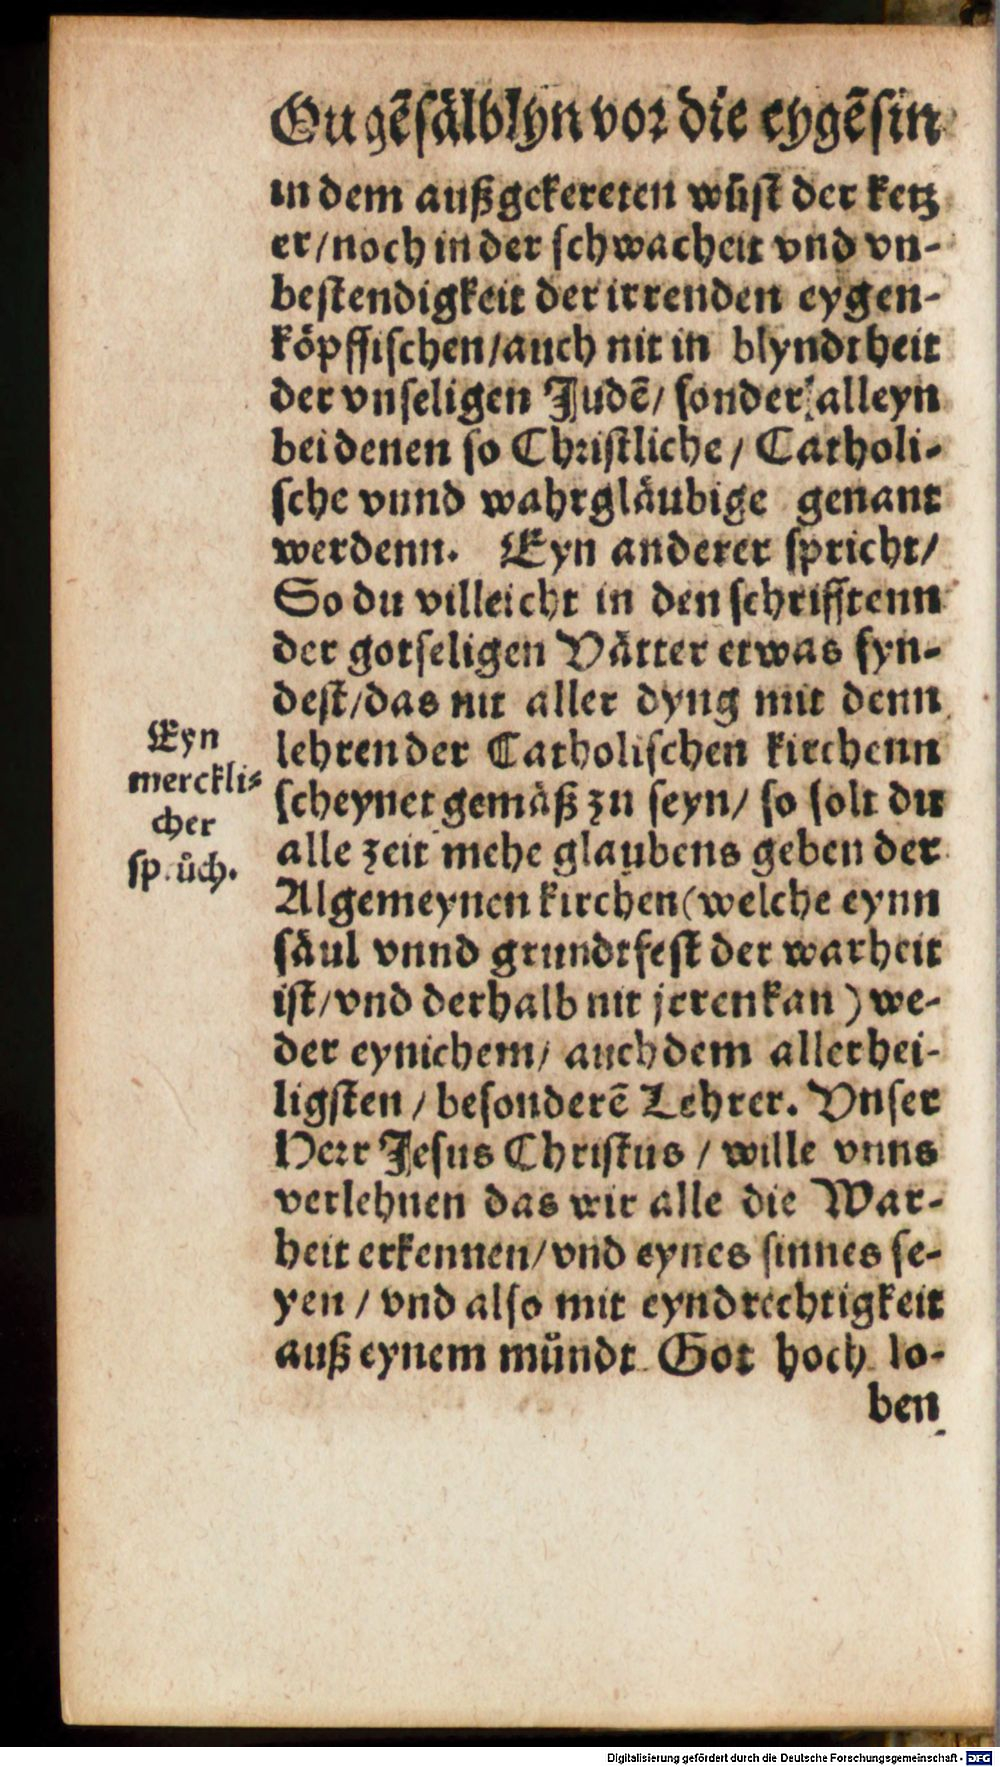 Eu gẽsälblyn vor die eygẽsin
in dem außgekereten wůst der ketz
er/noch in der schwacheit vnd vn-
bestendigkeit der irrenden eygen-
köpffischen/auch nit in blyndtheit
der vnseligen Judẽ/ sonder alleyn
bei denen so Christliche/ Catholi-
sche vnnd wahrgläubige genant
werdenn. Eyn anderer spricht/
So du villeicht in den schrifftenn
der gotseligen Vätter etwas fyn-
dest/das nit aller dyng mit denn
lehren der Catholischen kirchenn
scheynet gemäß zu seyn/ so solt du
alle zeit mehe glaubens geben der
Algemeynen kirchen(welche eynn
säul vnnd grundtfest der warheit
ist/vnd derhalb nit jrren kan) we-
der eynichem/ auch dem allerhei-
ligsten/ besonderẽ Lehrer. Vnser
Herr Jesus Christus/ wille vnns
verlehnen das wir alle die War-
heit erkennen/vnd eynes sinnes se-
yen/ vnd also mit eyndrechtigkeit
auß eynem můndt Got hoch lo-
ben
Eyn
merckli-
cher
spruͤch.
Digitalisierung gefördert durch die Deutsche Forschungsgemeinschaft - DFG